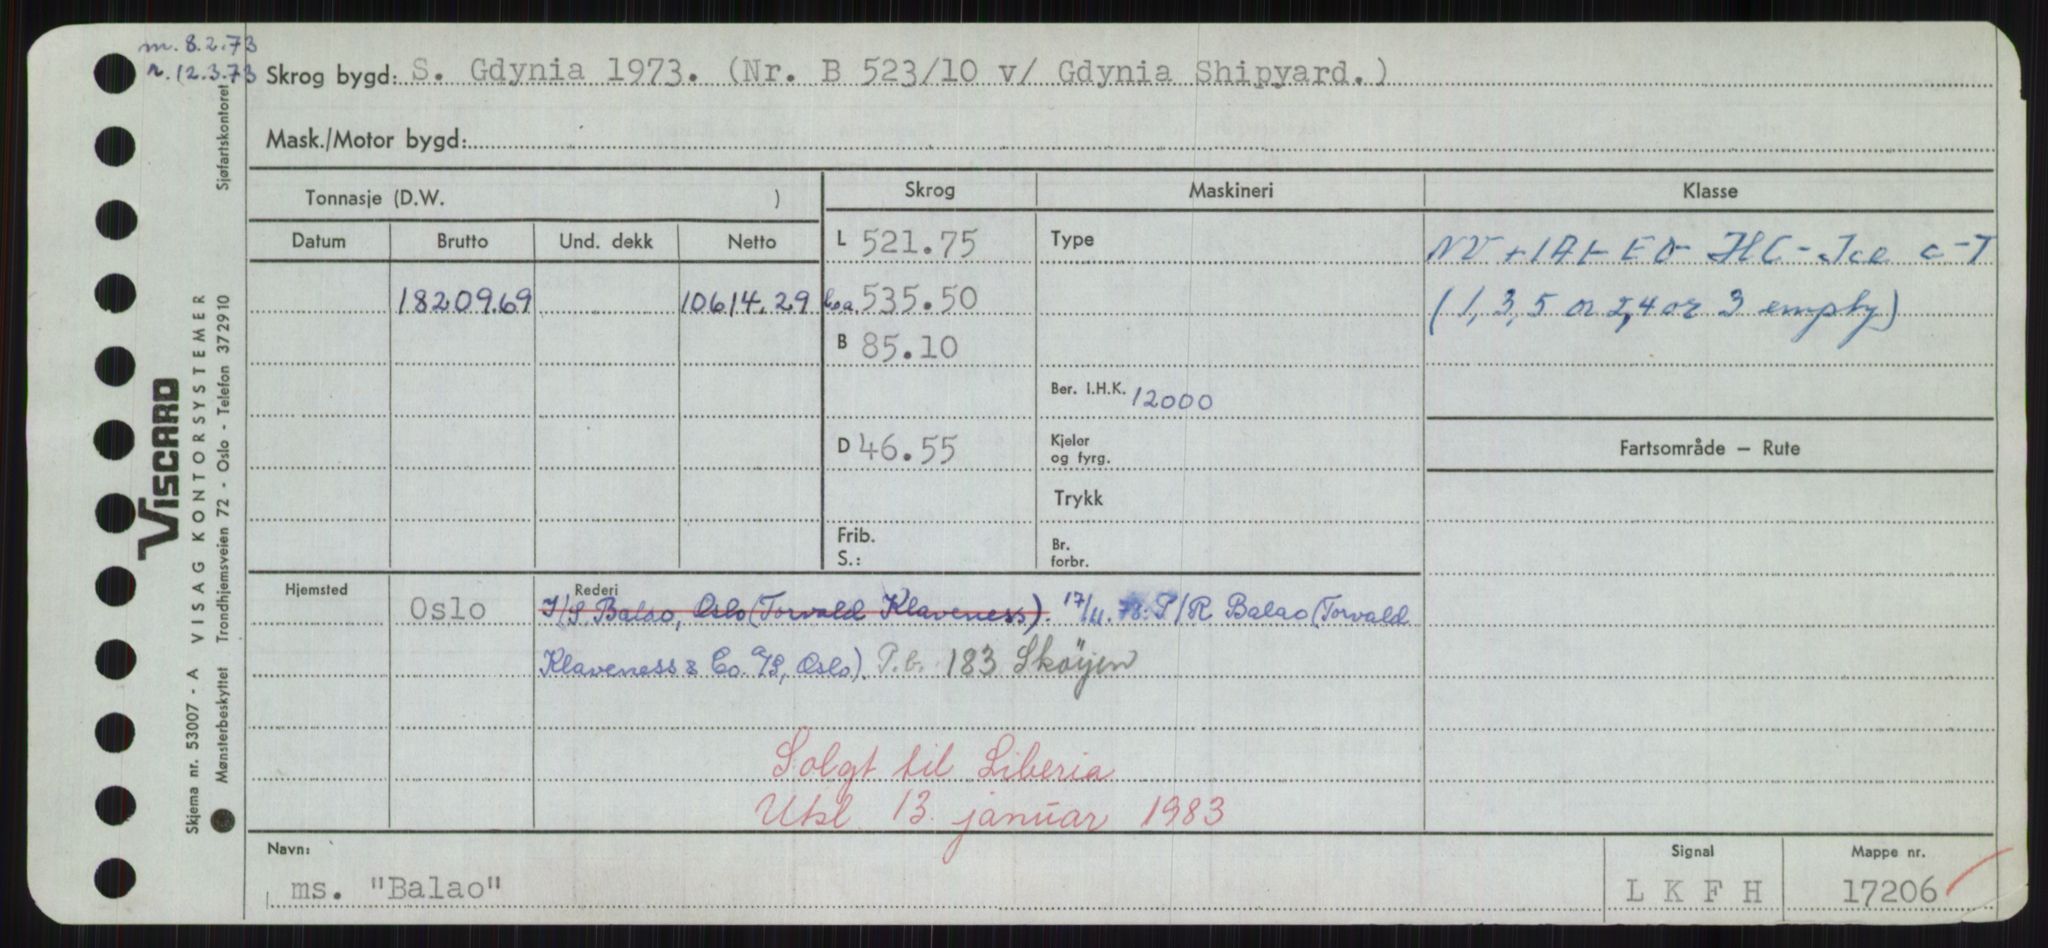 m. 8.2.73
r. 12.3.73 Skrog bygd: S. Gdynia 1973. (Nr. B 523/10 v/ Gdynia Shipyard.)
Mask./Motor bygd:
Tonnasje (D.W. )
Skrog Maskineri Klasse
Datum Brutto Und. dekk Netto
L 521.75 Type
NV +1A1- EO- HC- Ice C-T
18209.69 10614.29 Loa. 535.50
(1,3,5 or 2,4 or 3 empty)
B 85.10
Ber. I.H.K. 12000
D 46.55 Kjeler
og fyrg.
Fartsområde — Rute
Trykk
Frib.
S.:
Br.
forbr.
Hjemsted Rederi
Oslo I/S Balao, Oslo (Torvald Klaveness). 17/11.78: P/R Balao (Torvald
Klaveness & Co. A/S, Oslo). P.b. 183 Skøyen
Solgt til Liberia
Utsl 13. januar 1983
Navn: Signal Mappe nr.
ms. "Balao" L K F H 17206
VISCARD
Skjema nr. 53007 - A VISAG KONTORSYSTEMER
Mønsterbeskyttet Trondhjemsveien 72 - Oslo - Telefon 37 29 10 Sjøfartskontoret